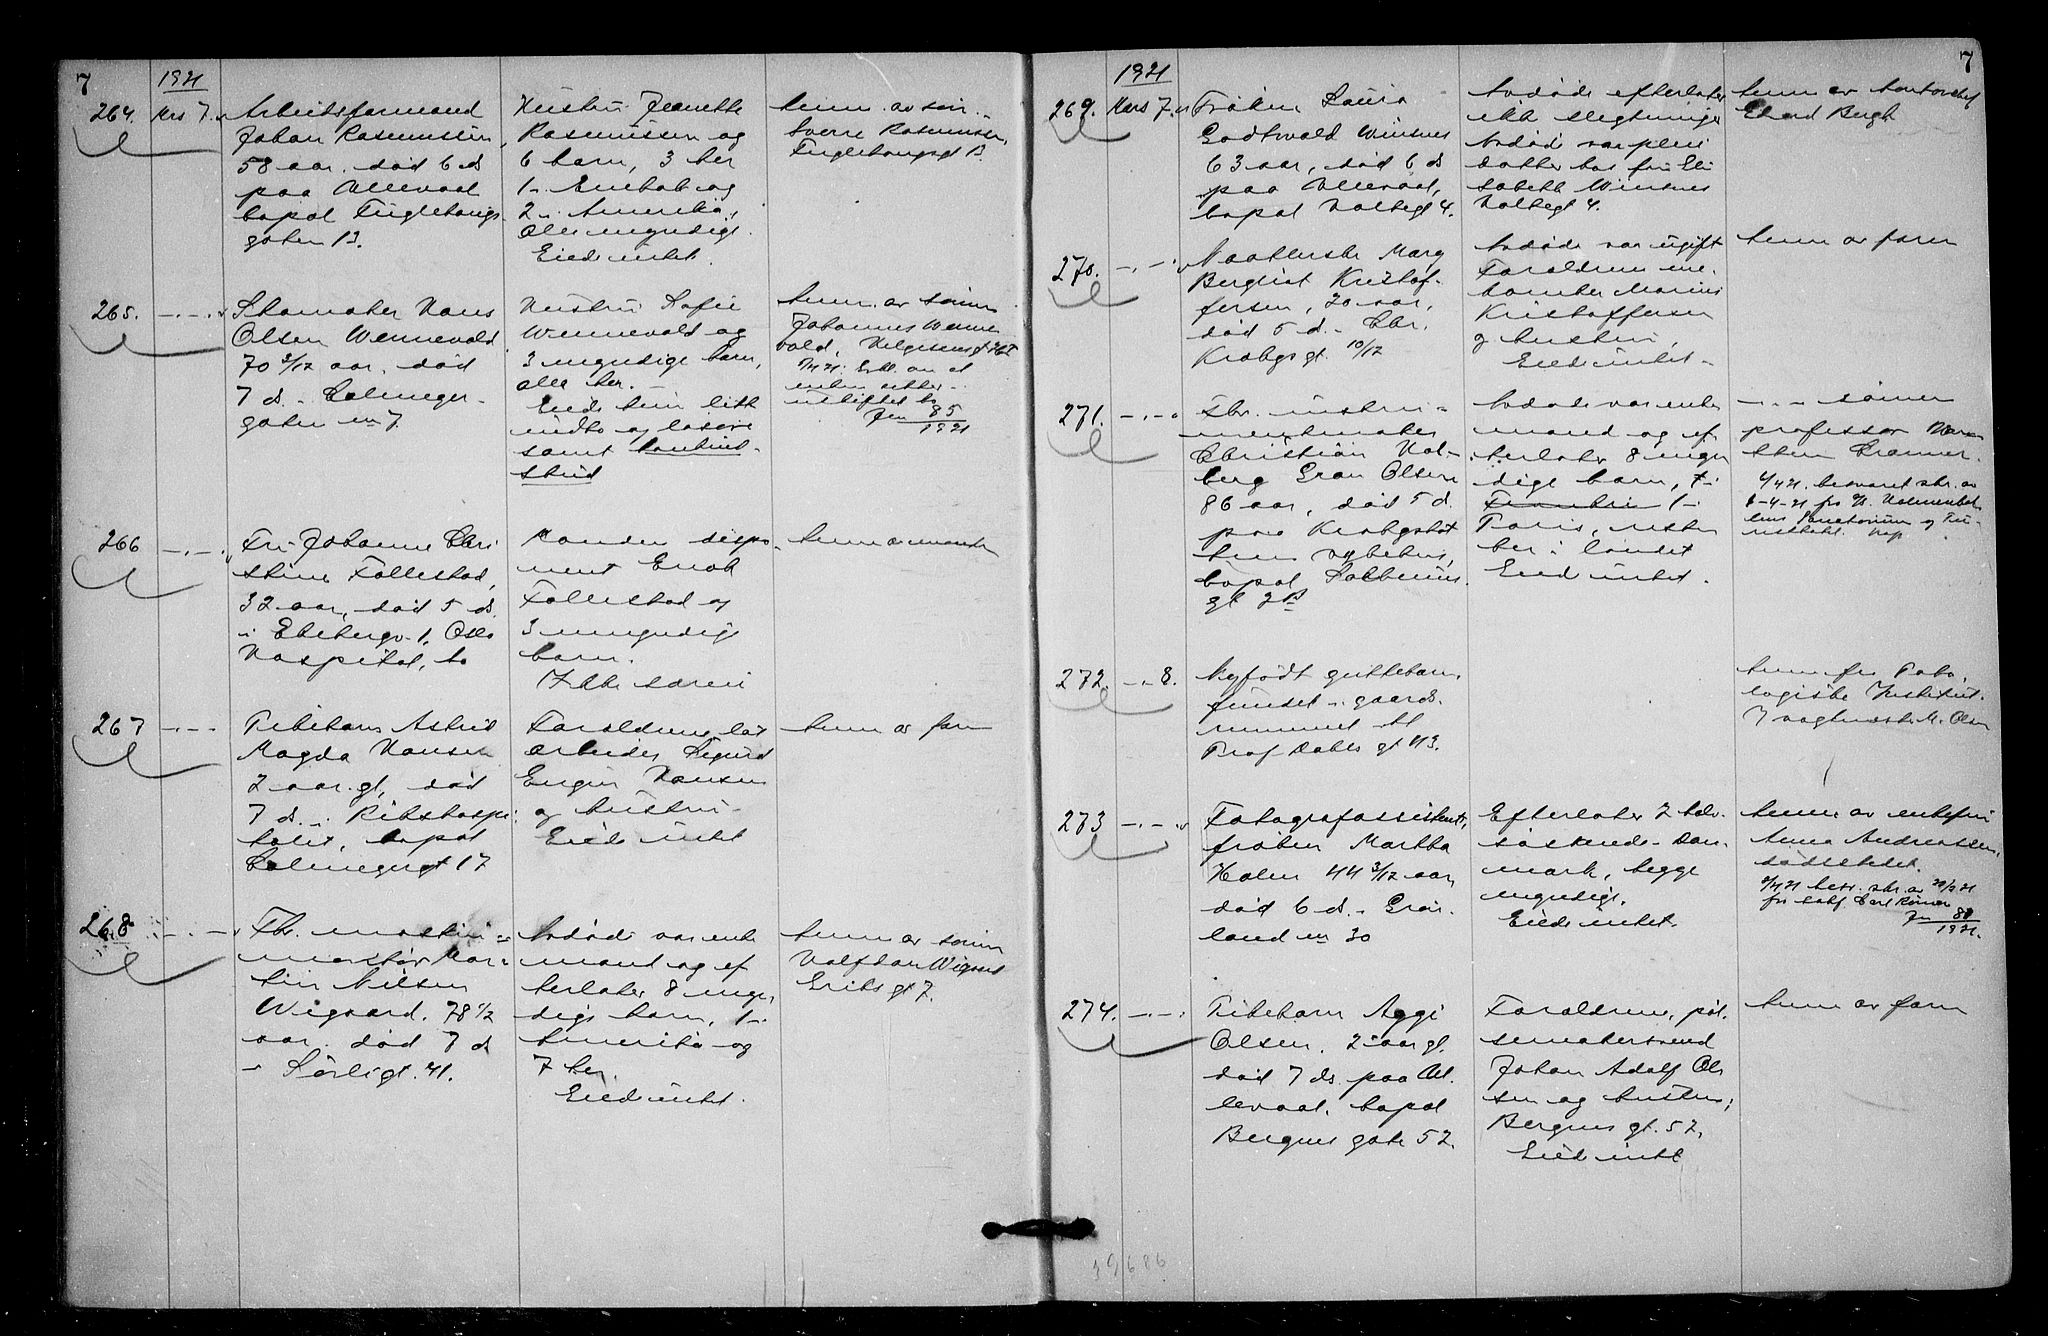 7
1921
264. Mrs 7.
Arbeidsformand
Johan Rasmussen,
58 aar, død 6 ds
paa Ullevaal
bopæl Fuglehaugs-
gaten 13.
Hustru Jeanette
Rasmussen og
6 barn, 3 her
1 - og
2 i Amerika,
alle myndige.
Eied intet.
anm. av søn
Sverre Rasmussen,
Fuglehaugsgt 13.
265. -.-.
Skomaker Hans
Olsen Wennevold
70 3/12 aar, død
7 ds.
gaten no 7.
Hustru Sofie
Wennevold og
3 myndige barn,
alle her.
Eiede kun litt
indbo og løsøre
samt
anm. av sønnen
Johannes Wenne
vold,
85
1921
266 -.-.
Fru Johanne Chri
stine Follestad,
32 aar, død 5 ds
i Ekebergv. 1. Oslo
Hospital,
Manden dispo-
nent Enok
Follestad og
3 umyndige
barn.
Ikke særeie
anm av manden
267 -.-.
Pikebarn Astrid
Magda Hansen
2 aar gl, død
7 ds. i Rikshospi
talet, bopæl
gt 17
Forældrene,
arbeider Sigurd
Eugen Hansen
og hustru
Eiede intet
anm av farn
268 -.-.
Fhv. maskin-
mester Mar-
tin Nilsen
Wigaard. 78 1/2
aar, død 7 ds
i Sørligt. 41.
Avdøde var enke
mand og ef
terlater 8 myn
dige barn, 1 i
Amerika og
7 her.
Eied intet.
anm av sønn
Halfdan Wigaard
Eriks gt 7.
7
1921
269. Mars 7.
Frøken Laura
Godtvald Winsnes
63 aar, død 6 ds
paa Ullevaal,
bopæl Holtegt 4.
Avdøde efterlater
ikke slegtninger
Avdøde var pleie
datter hos fru Eli
sabeth Winsnes
Holtegt 4.
anm av kontorchef
Edvard Bergh
270. -.-.
Maatterske Mary
Bergliot Kristof-
fersen, 20 aar,
død 5 ds. i Chr.
Krohgs gt. 10/12
Avdøde var ugift
Forældrene
Marius
Kristoffersen
og hustru,
Eiede intet -
anm av faren
271. -.-.
Fhv. instru-
mentmaker
Christian Hol-
berg Gran Olsen
86 aar, død 5 ds.
paa Krohgstøt
tens sykehus,
bopæl
gt 2B
Avdøde var enke
mand og ef
terlater 8 myn
dige barn,
1 i
Paris, resten
her i landet
Eied intet.
-.-. sønnen
professor
4/4 21. besvaret skr. av
1-4-21 fra
Sanatorium
272. -.-. 8.
Nyfødt guttebarn
fundet i gaards-
rummet til
Prof Dahls gt 43.
Anm. fra Pato-
logiske Institut.
M. Olsen
273 -.-.
Fotografassistent,
frøken Martha
Holm 44 3/12 aar
død 6 ds. i Grøn-
land no 30
Efterlater 2 halv
søskende i Dan-
mark, begge
myndige.
Eiede intet.
anm. av enkefru
Anna Andreassen,
88
1921.
274. -.-.
Pikebarn Aggi
Olsen. 2 aar gl.
død 7 ds. paa Ul-
levaal. bopæl
Bergens gate 52.
Forældrene, pøl-
semakersvend
Johan Adolf Ol
sen og hustru,
Bergens gt. 52,
Eied intet
anm av farn
39686